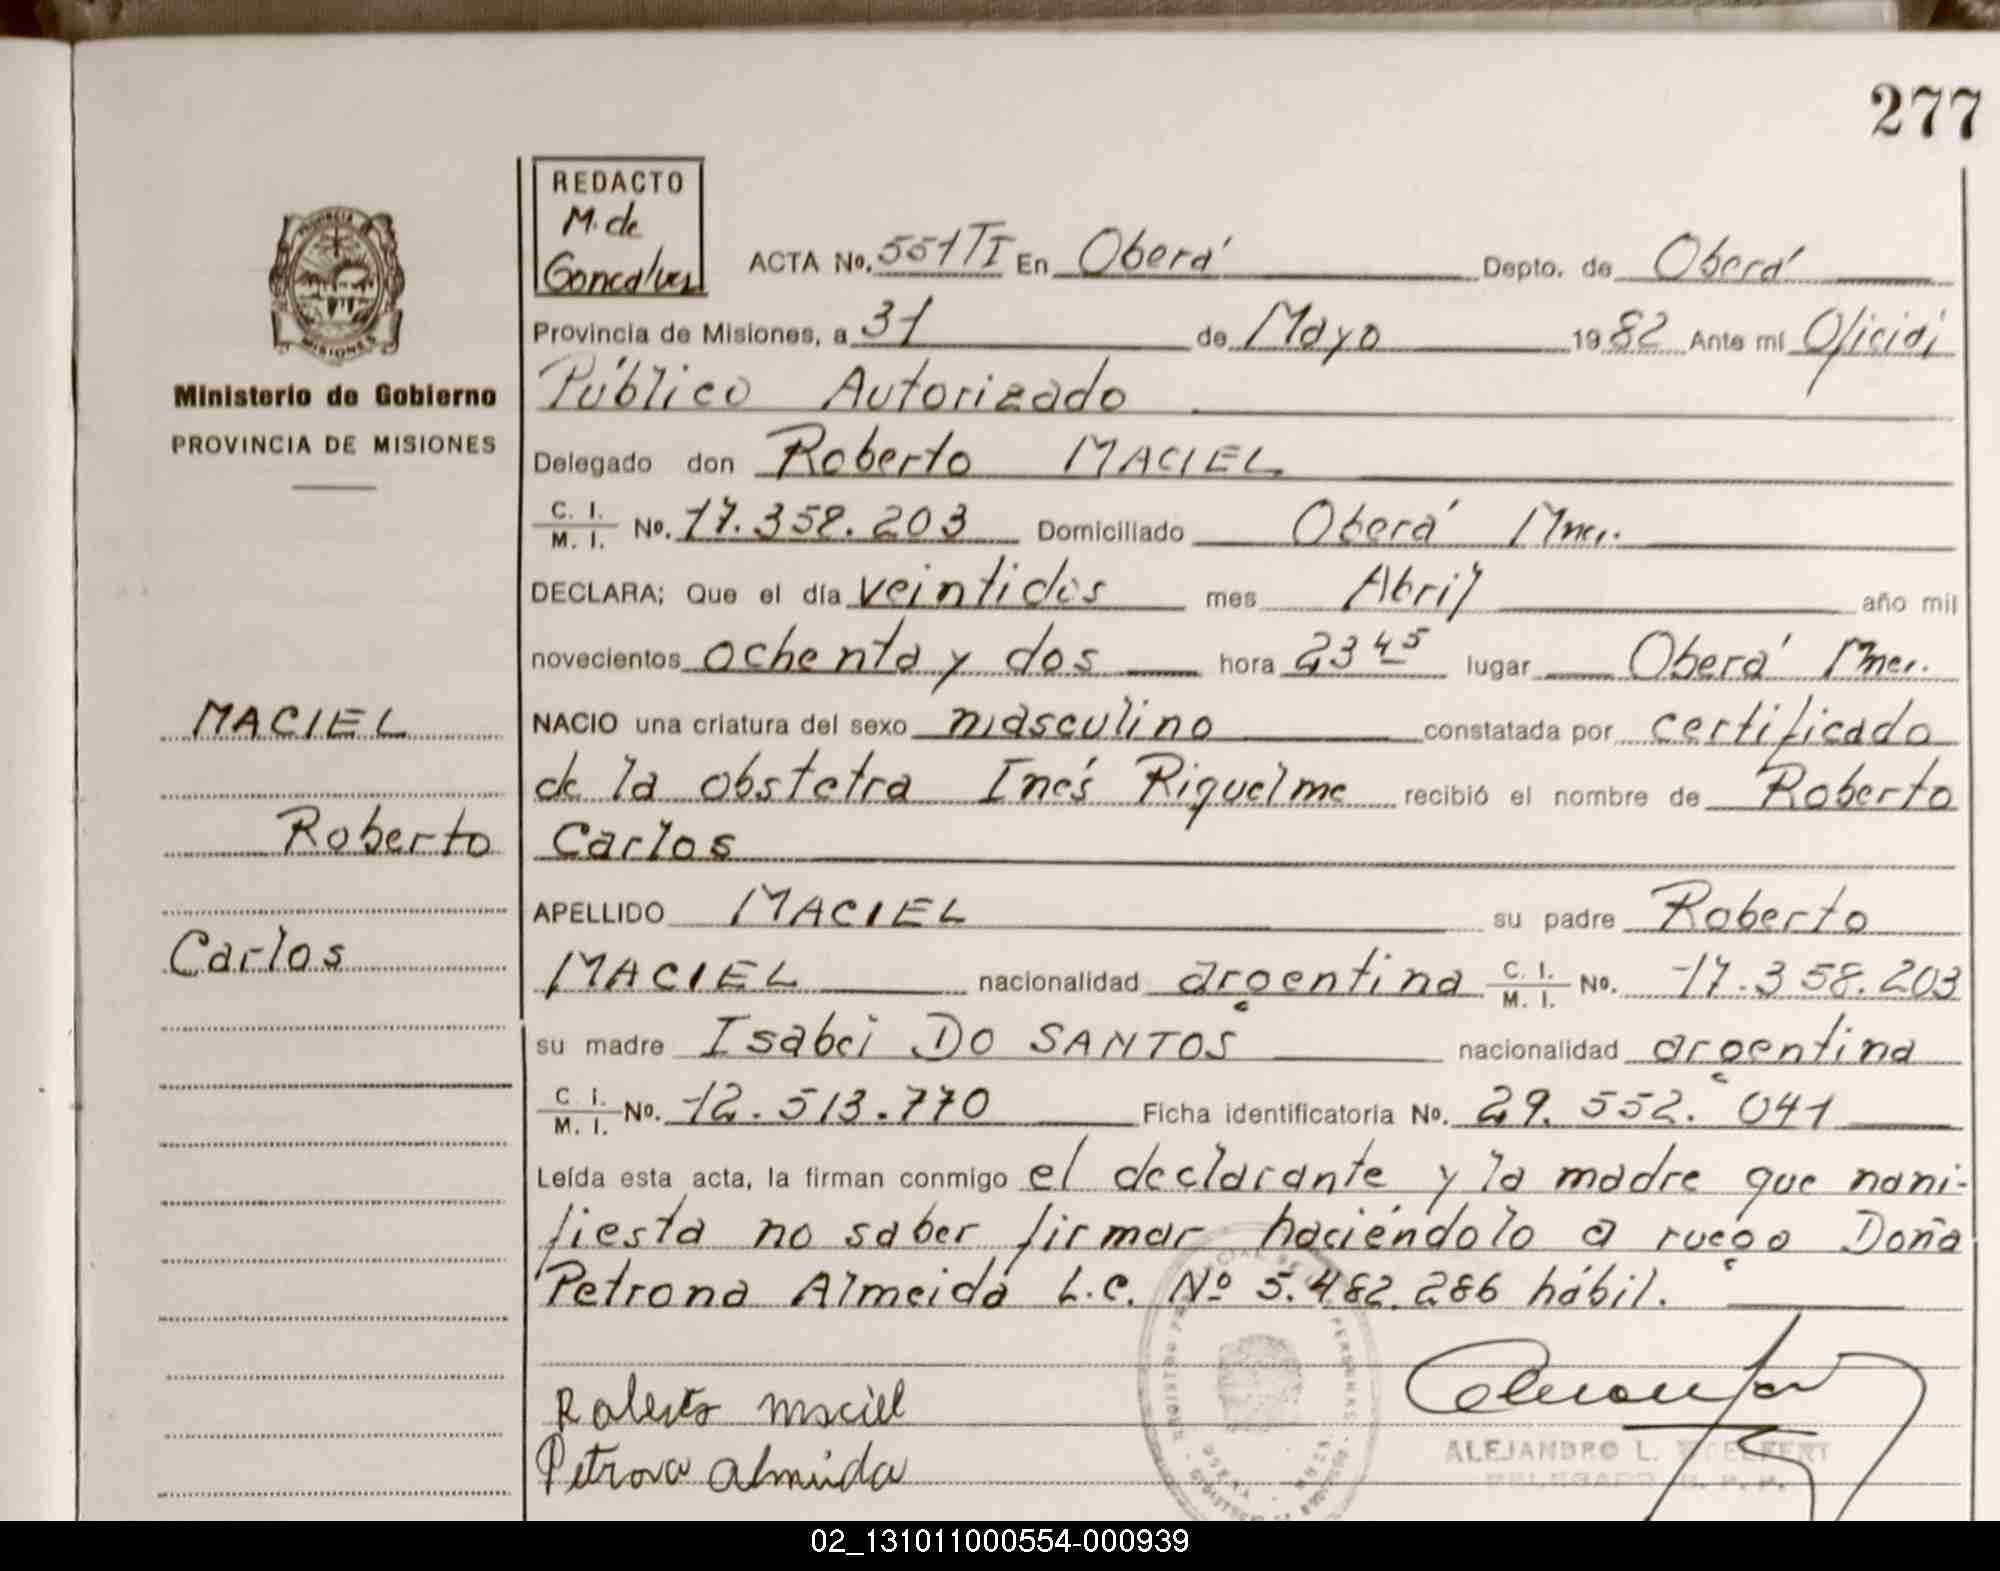 277
REDACTO
M. de
Goncalves
ACTA No. 551TI En Oberá Depto. de Oberá
Provincia de Misiones, a 31 de Mayo 1982 Ante mí Oficial
Público Autorizado
Delegado don Roberto MACIEL
C. I. / M. I. No. 17.358.203 Domiciliado Oberá Mnes.
DECLARA; Que el día veintidos mes Abril año mil
novecientos ochenta y dos hora 23 45 lugar Oberá Mnes.
NACIO una criatura del sexo masculino constatada por certificado
de la obstetra Inés Riquelme recibió el nombre de Roberto
Carlos
APELLIDO MACIEL su padre Roberto
MACIEL nacionalidad argentina C. I. / M. I. No. 17.358.203
su madre Isabel DO SANTOS nacionalidad argentina
C. I. / M. I. No. 12.513.770 Ficha identificatoria No. 29.552.041
Leída esta acta, la firman conmigo el declarante y la madre que mani-
fiesta no saber firmar haciéndolo a ruego Doña
Petrona Almeida L.C. Nº 5.482.286 hábil.
Roberto Maciel
Petrona Almeida
ALEJANDRO L.
PROVINCIA
MISIONES
Ministerio de Gobierno
PROVINCIA DE MISIONES
MACIEL
Roberto
Carlos
02_131011000554-000939